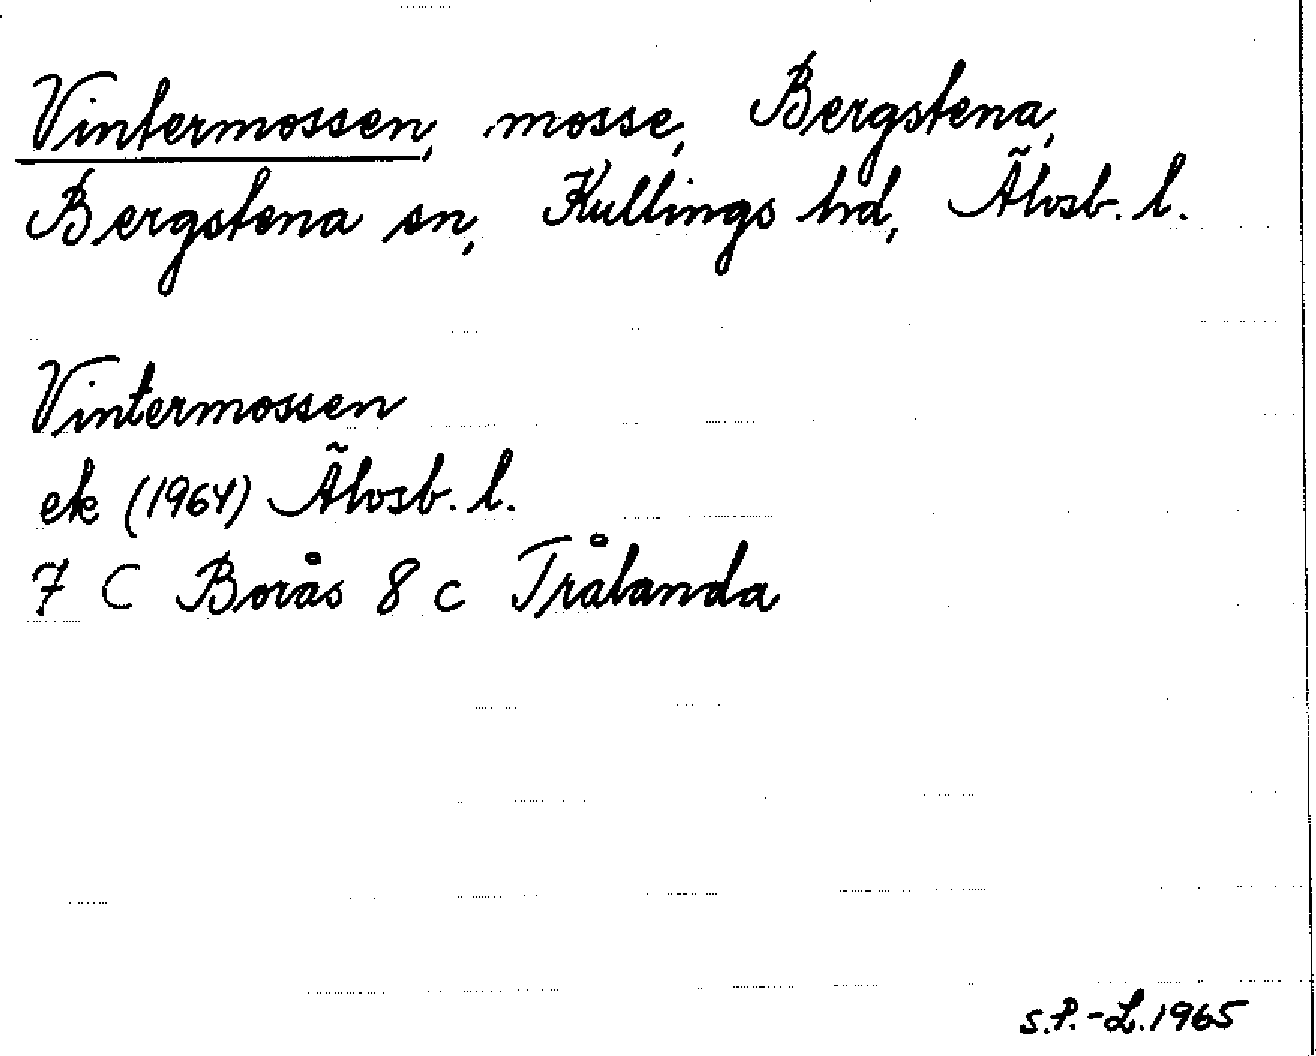 Vintermossen, mosse, Bergstena,
Bergstena sn, Kullings hd, Älvsb. l.
Vintermossen
ek (1964) Älvsb. l.
7 C Borås 8 c Trålanda
S.P.-L. 1965